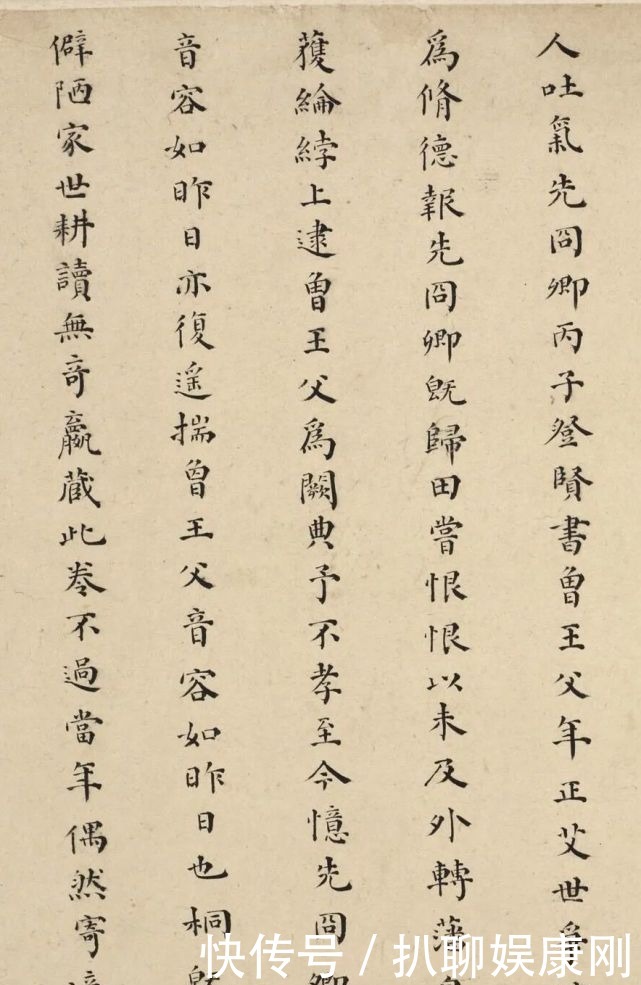 人吐氣先冏卿丙子登賢書曾王父年正艾世爭
爲脩德報先冏卿既歸田嘗恨恨以未及外轉藩
穫綸綍上逮曾王父爲闕典予不孝至今憶先冏卿
音容如昨日亦復遥揣曾王父音容如昨日也桐
僻陋家世耕讀無竒羸蔵此卷不過當年偶然寄
快传号/扒聊娱康刚